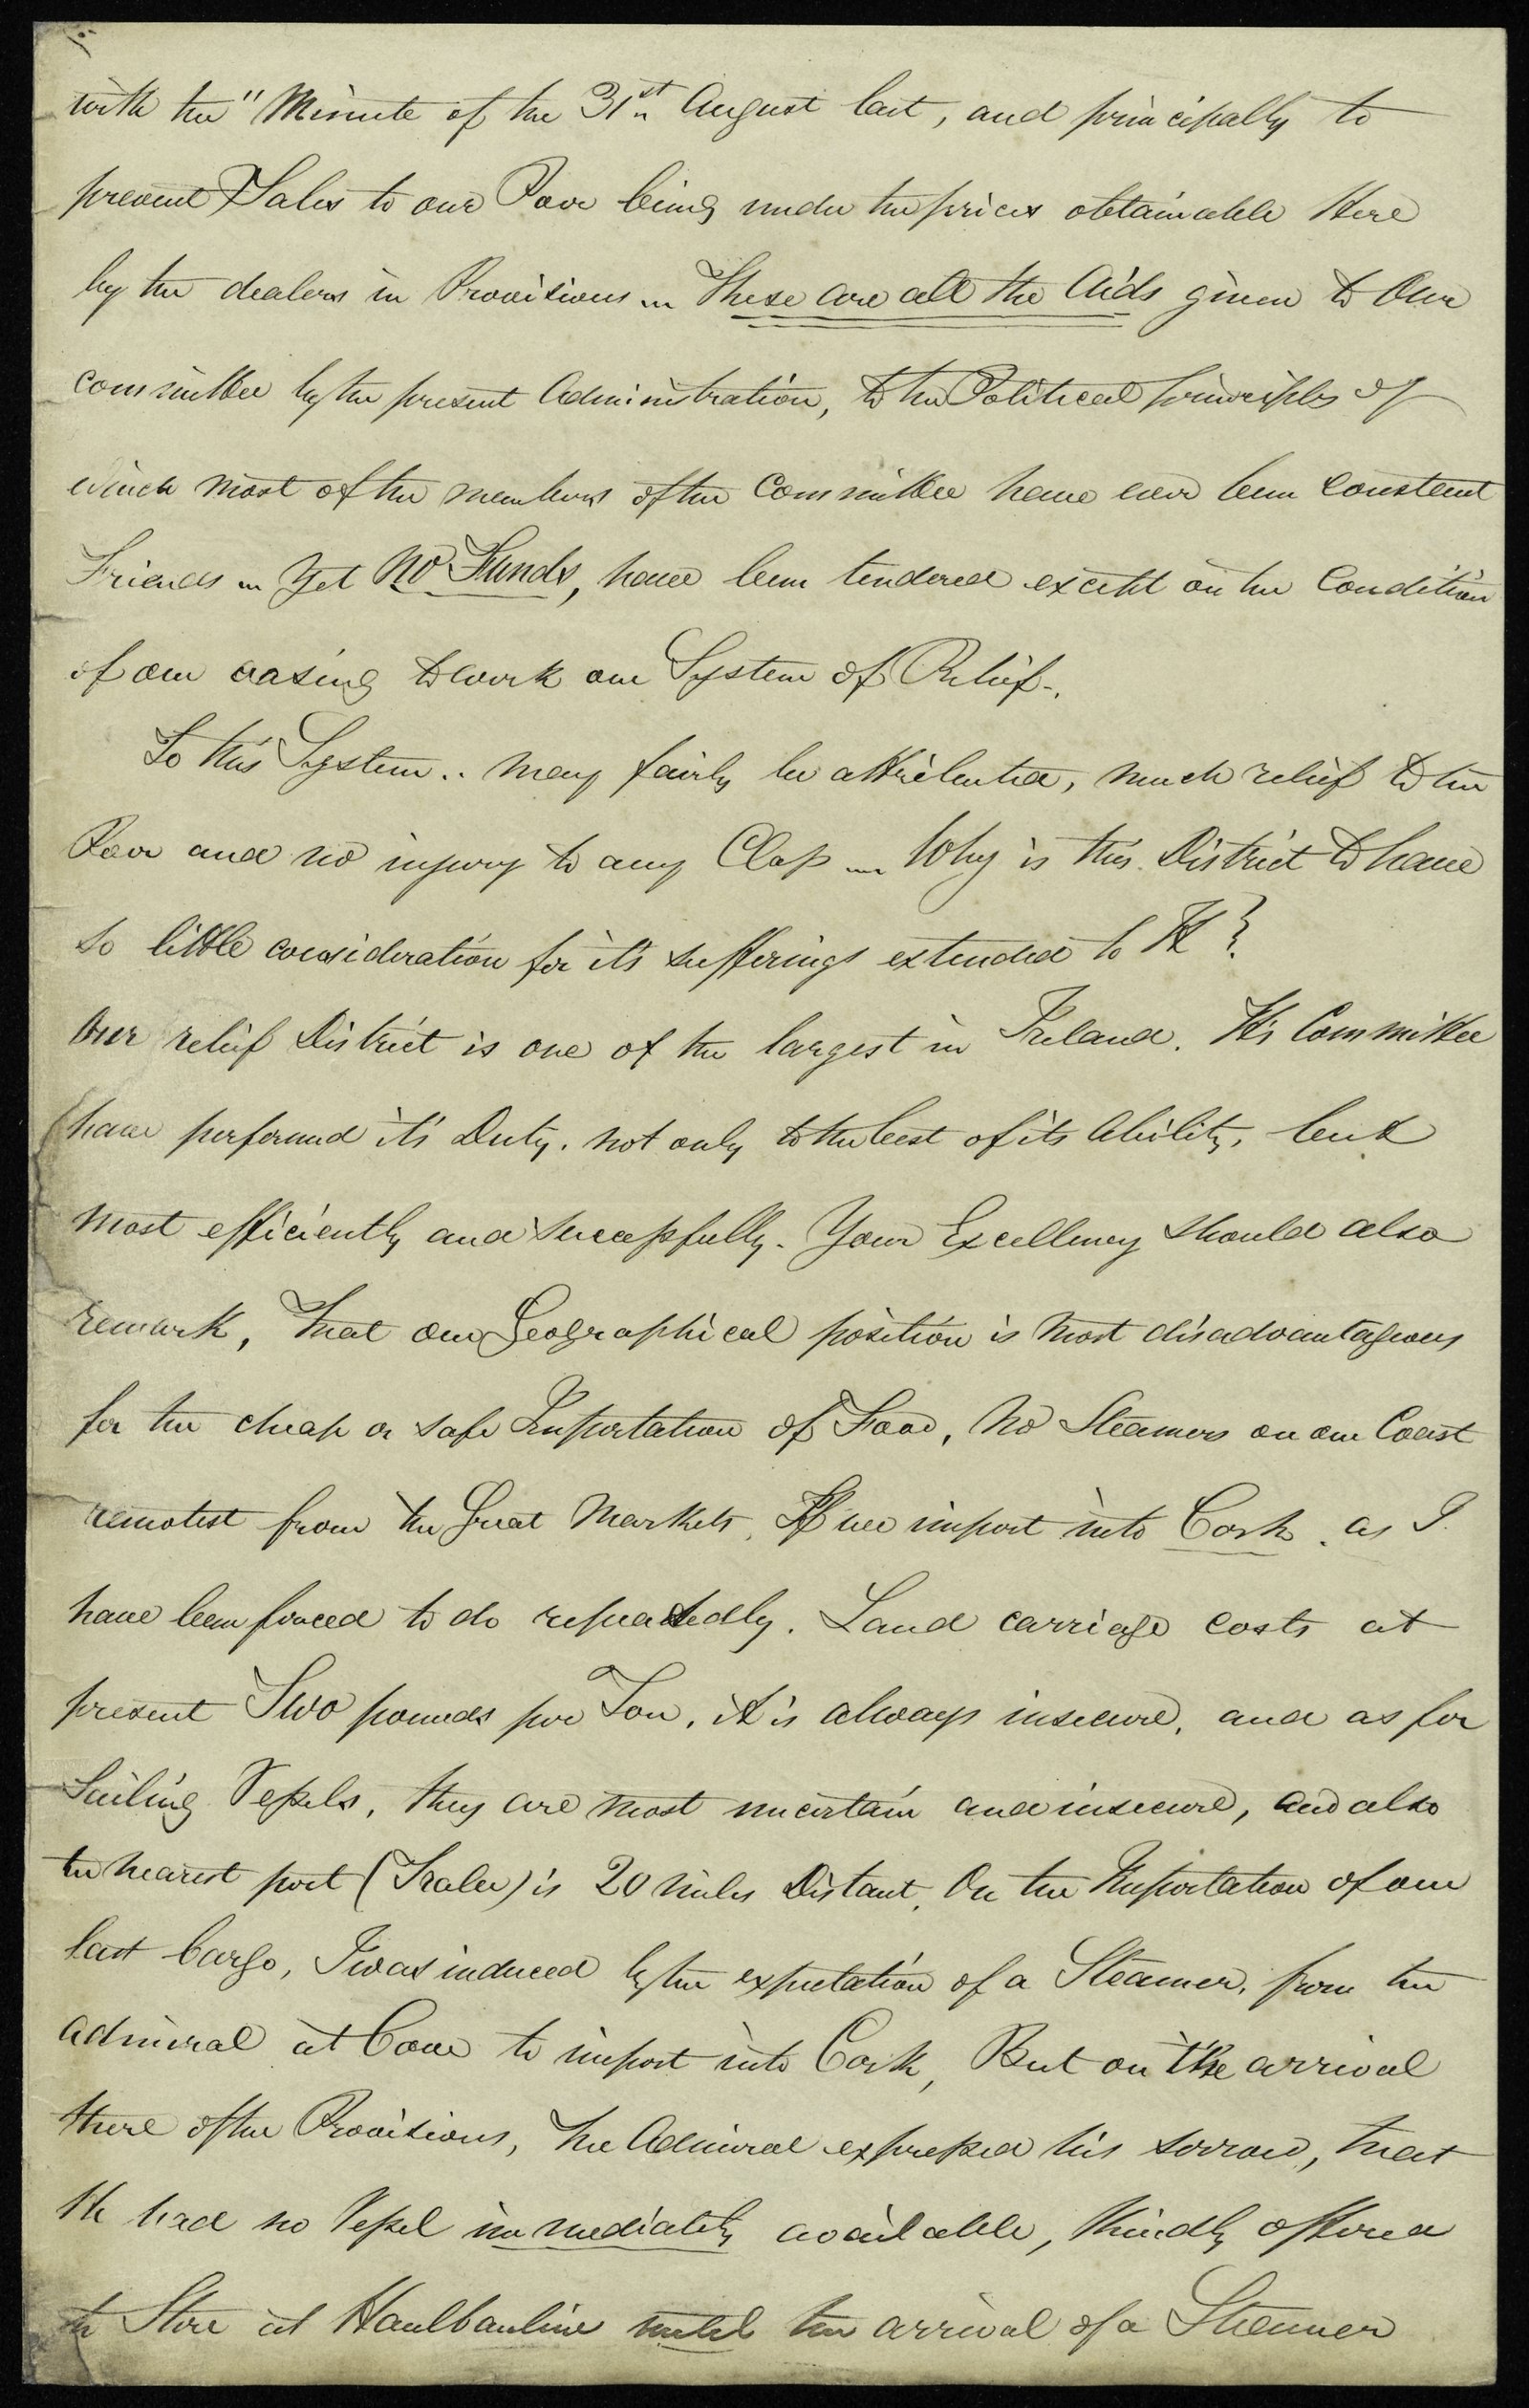 with the "Minute of the 31st August last, and principally to
prevent Sales to our Poor being under the prices obtainable Here
by the dealers in Provisions — These are all the Aids given to Our
committee by the present Administration, to the Political principles of
which most of the members of the Committee have ever been Constant
Friends — Yet No Funds, have been tendered except on the Condition
of our ceasing to work our System of Relief-.
To this System.. may fairly be attributed, much relief to the
Poor and no injury to any Class — Why is this District to have
so little consideration for it's sufferings extended to It ?
Our relief District is one of the largest in Ireland. It's Committee
have performed it's Duty. not only to the best of its Ability, but
most efficiently and successfully. Your Excellency should also
remark, That our Geographical position is most disadvantageous
for the cheap or safe Importation of Food, No Steamers on our Coast
remotest from the Great Markets. If we import into Cork. as I
have been forced to do repeatedly. Land carriage costs at
present Two pounds per Ton, it is always insecure, and as for
Sailing Vessels, they are most uncertain and insecure, and also
the nearest port (Tralee) is 20 miles Distant. On the Importation of our
last Cargo, I was induced by the expectation of a Steamer, from the
Admiral at Cove to import into Cork, But on the arrival
there of the Provisions, The Admiral expressed his sorrow, that
He had no Vessel immediately available, Kindly offered
to Store at Haulbauline until the arrival of a Steamer